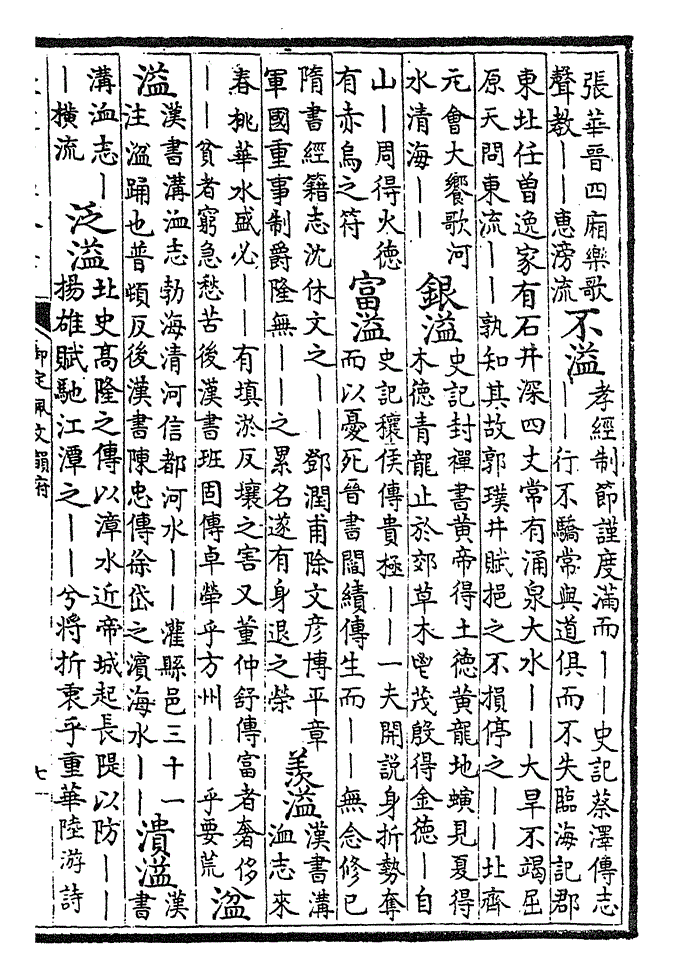 張華晋四廂樂歌
聲教——惠滂流
不溢
孝經制節謹度滿而——史記蔡澤傳志
——行不驕常與道俱而不失臨海記郡
東北任曾逸家有石井深四丈常有涌泉大水——大旱不竭屈
原天問東流——孰知其故郭璞井賦挹之不損停之——北齊
元會大饗歌河
水清海——
銀溢
史記封禪書黄帝得土德黄龍地螾見夏得
木德青龍止於郊草木鬯茂殷得金德—自
山—周得火德
有赤烏之符
富溢
史記穰侯傳貴極——一夫開說身折勢奪
而以憂死晉書閻纘傳生而——無念修已
隋書經籍志沈休文之——鄧潤甫除文彦博平章
軍國重事制爵隆無——之累名遂有身退之榮
羨溢
漢書溝
洫志來
春桃華水盛必——有填淤反壤之害又董仲舒傳富者奢侈
——貧者窮急愁苦後漢書班固傳卓犖乎方州——乎要荒
湓
溢
漢書溝洫志勃海清河信都河水——灌縣邑三十一
注湓踊也普頓反後漢書陳忠傳徐岱之濵海水——
潰溢
漢
書
溝洫志—
—横流
泛溢
北史髙隆之傳以漳水近帝城起長隄以防——
揚雄賦馳江潭之——兮將折衷乎重華陸游詩
御定佩文韻府
七